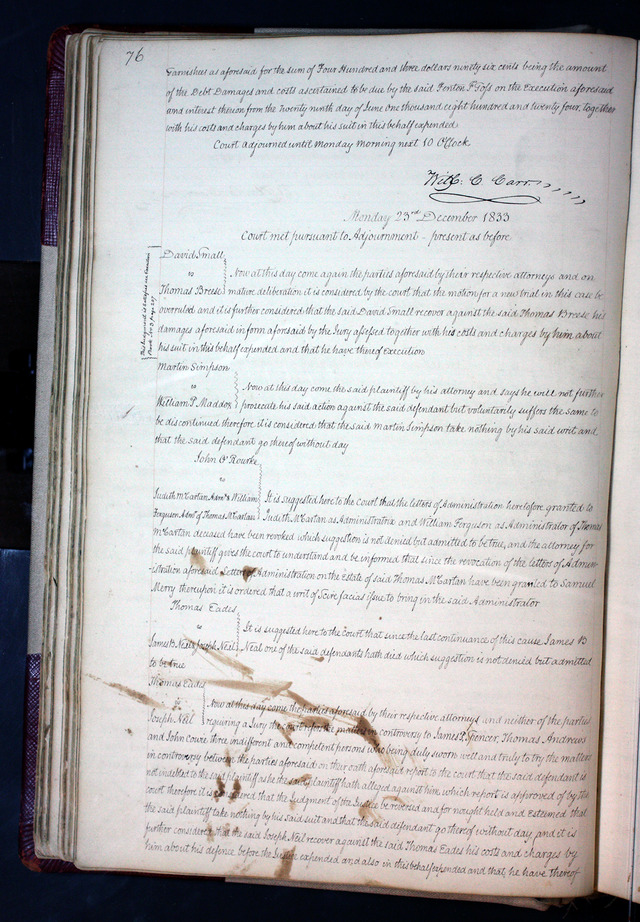 76
Garnishee as aforesaid for the sum of Four Hundred and three dollars ninety six cents being the amount
of the Debt Damages and costs ascertained to be due by the said Fenton P Foss on the Execution aforesaid
and interest thereon from the Twenty ninth day of June one thousand eight hundred and twenty four, together
with his costs and charges by him about his suit in this behalf expended
Court adjourned until Monday morning next 10 O'Clock
Will: C. Carr
Monday 23rd December 1833
Court met pursuant to Adjournment - present as before
David Small
vs
Thomas Breese
Now at this day come again the parties aforesaid by their respective attorneys and on
mature deliberation it is considered by the court that the motion for a new trial in this case be
overruled and it is further considered that the said David Small recover against the said Thomas Breese his
damages aforesaid in form aforesaid by the Jury assessed together with his costs and charges by him about
his suit in this behalf expended and that he have thereof execution
This Judgement is satisfied see Execution
Martin Simpson
vs
William P. Maddox
Now at this day come the said plaintiff by his attorney and says he will not further
prosecute his said action against the said defendant but voluntarily suffers the same to
be discontinued therefore it is considered that the said Martin Simpson take nothing by his said writ and
that the said defendant go thereof without day
John O'Rourke
vs
Judith McCartan Admx & William
Ferguson Admr of Thomas McCartan
It is suggested here to the Court that the letters of Administration heretofore granted to
Judith McCartan as Administratrix and William Ferguson as Administrator of Thomas
McCartan deceased have been revoked which suggestion is not denied but admitted to be true, and the attorney for
the said plaintiff gives the court to understand and be informed that since the revocation of the letters of Admin-
istration aforesaid Letters of Administration on the Estate of said Thomas McCartan have been granted to Samuel
Merry thereupon it is ordered that a writ of Scire facias issue to bring in the said Administrator
Thomas Eades
vs
James B. Neal & Joseph Neal
It is suggested here to the court that since the last continuance of this cause James B
Neal one of the said defendants hath died which suggestion is not denied but admitted
to be true
Thomas Eades
Joseph Neil
Now at this day come the parties aforesaid by their respective attorneys and neither of the parties
requiring a Jury the court refer the matters in controversy to James P. Spencer, Thomas Andrews
and John Cowie three indifferent and competent persons who being duly sworn well and truly to try the matters
in controversy between the parties aforesaid on their oath aforesaid report to the court that the said defendant is
not indebted to the said plaintiff as he the said plaintiff hath alleged against him, which report is approved of by the
court therefore it is considered that the Judgment of the Justice be reversed and for nought held and Esteemed that
the said plaintiff take nothing by his said suit and that the said defendant go thereof without day and it is
further considered that the said Joseph Neil recover against the said Thomas Eades his costs and charges by
him about his defence before the Justice expended and also in this behalf expended and that, he have thereof